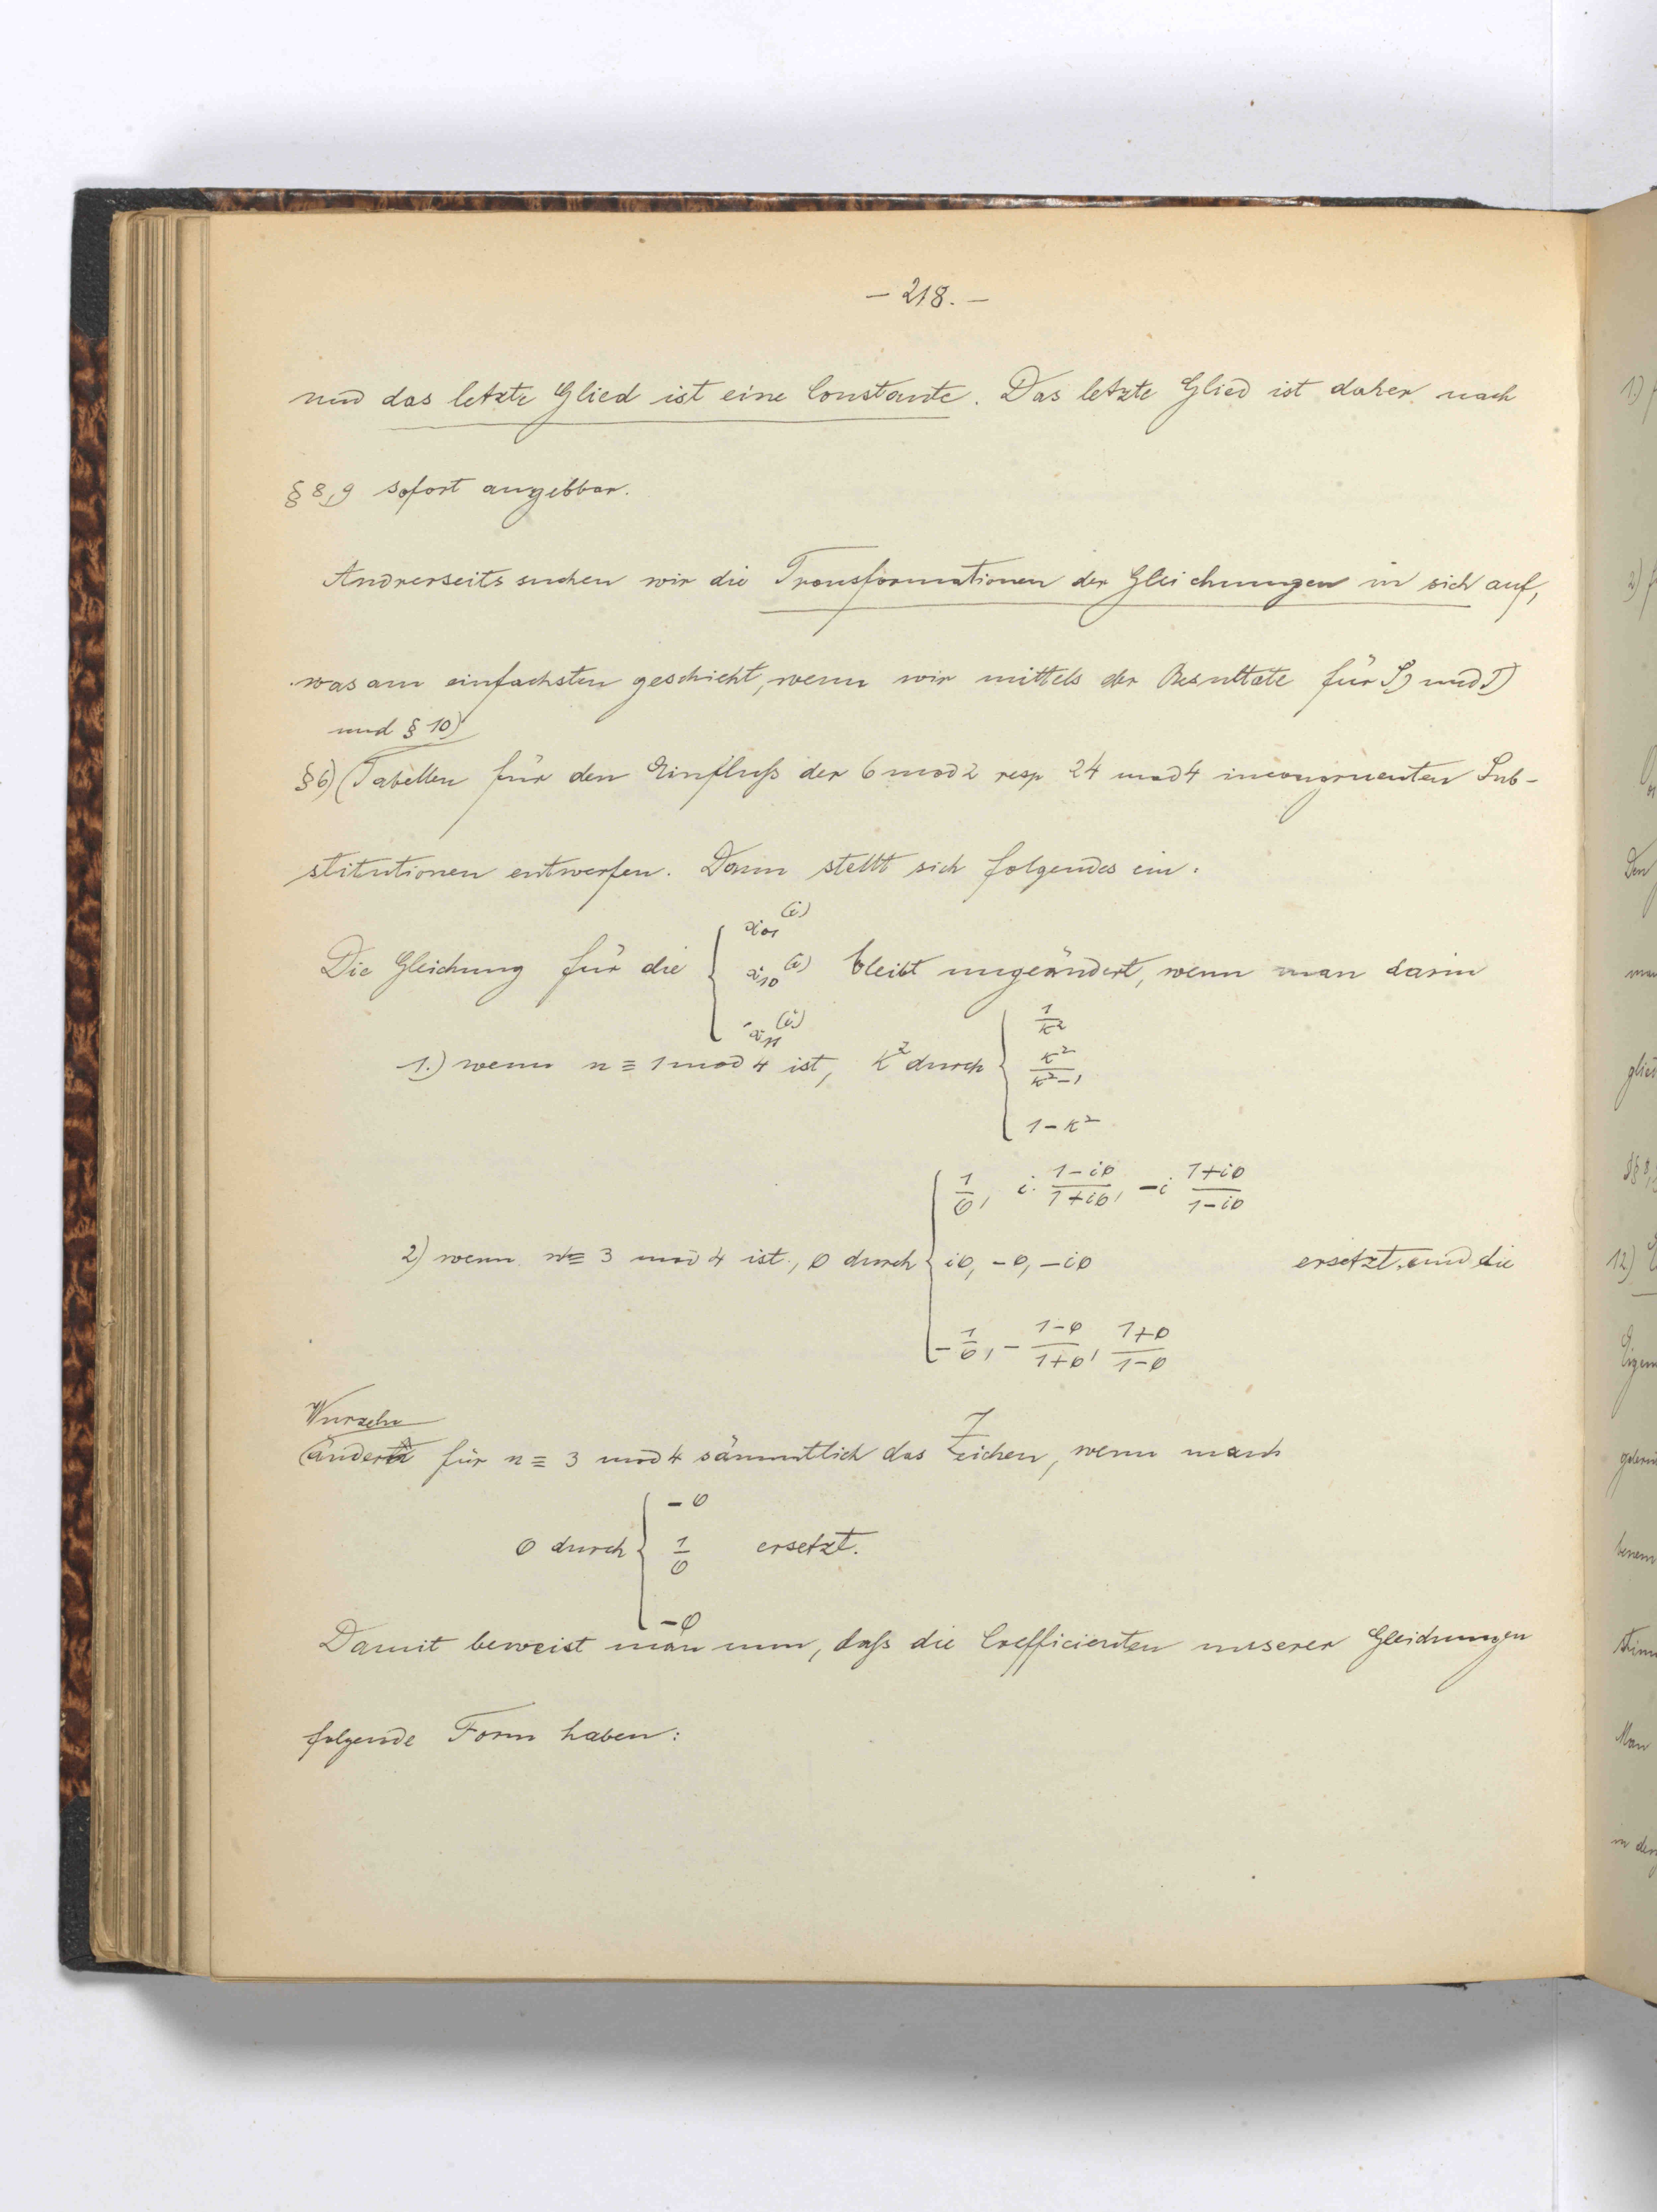 – 218. –
und das letzte Glied ist eine Constante. Das letzte Glied ist daher nach
§ 8, 9 sofort angebbar.
Andrerseits suchen wir die Transformationen der Gleichungen in sich auf,
was am einfachsten geschieht, wenn wir mittels der Resultate für S) und T)
und § 10)
§6) (Tabellen für den Einfluß der 6 mod 2 resp 24 mod 4 incongruenten Sub-
stitutionen entwerfen. Dann stellt sich folgendes ein:
Die Gleichung für die { x₀₁⁽ⁱ⁾ x₁₀⁽ⁱ⁾ x₁₁⁽ⁱ⁾ bleibt ungeändert, wenn man darin
1.) wenn n ≡ 1 mod 4 ist, k² durch { 1/k² k²/(k²-1) 1-k²
2) wenn n ≡ 3 mod 4 ist, φ durch { 1/φ, i·(1-iφ)/(1+iφ), -i (1+iφ)/(1-iφ)
iφ, -φ, -iφ ersetzt und die
-1/φ, -(1-φ)/(1+φ), (1+φ)/(1-φ)
Wurzeln
ändern für n ≡ 3 mod 4 sämmtlich das Zeichen, wenn man
φ durch { -φ 1/φ -φ ersetzt.
Damit beweist man nun, daß die Coefficienten unserer Gleichungen
folgende Form haben: